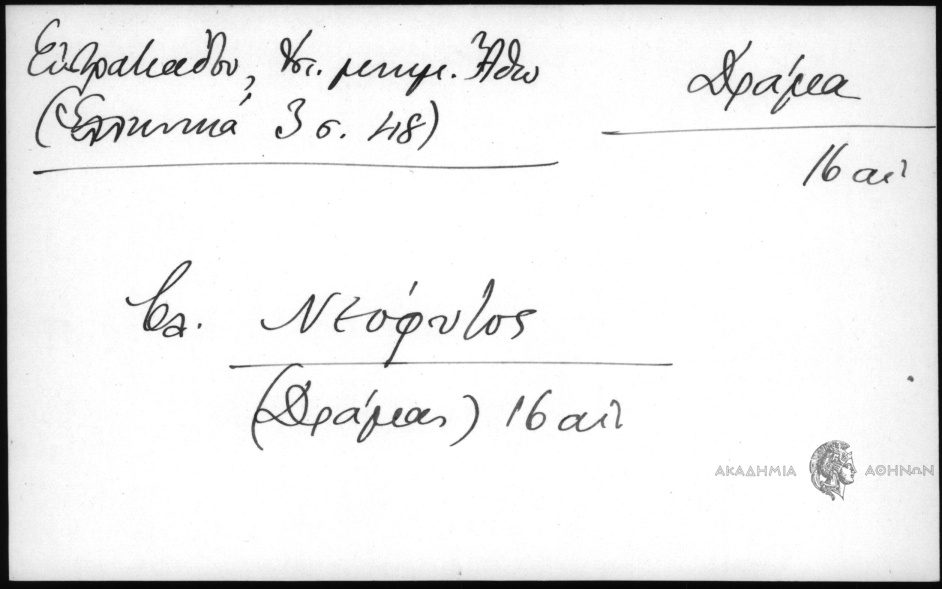 Εὐστρατιάδου, Ἱστ. μνημ. Ἄθω
(Ἑλληνικά 3 σ. 48)
Δράμα
16 αἰ
βλ. Νεόφυτος
(Δράμας) 16 αἰ
ΑΚΑΔΗΜΙΑ ΑΘΗΝΩΝ